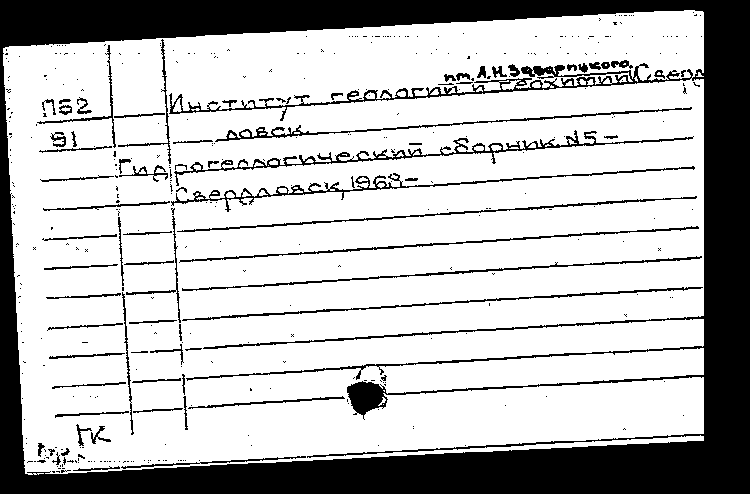 им. А.Н. Заварицкого.
П52 Институт геологии и геохимии Сверд
91 ловск.
Гидрогеологический сборник. N5 –
Свердловск, 1968 –
ГК